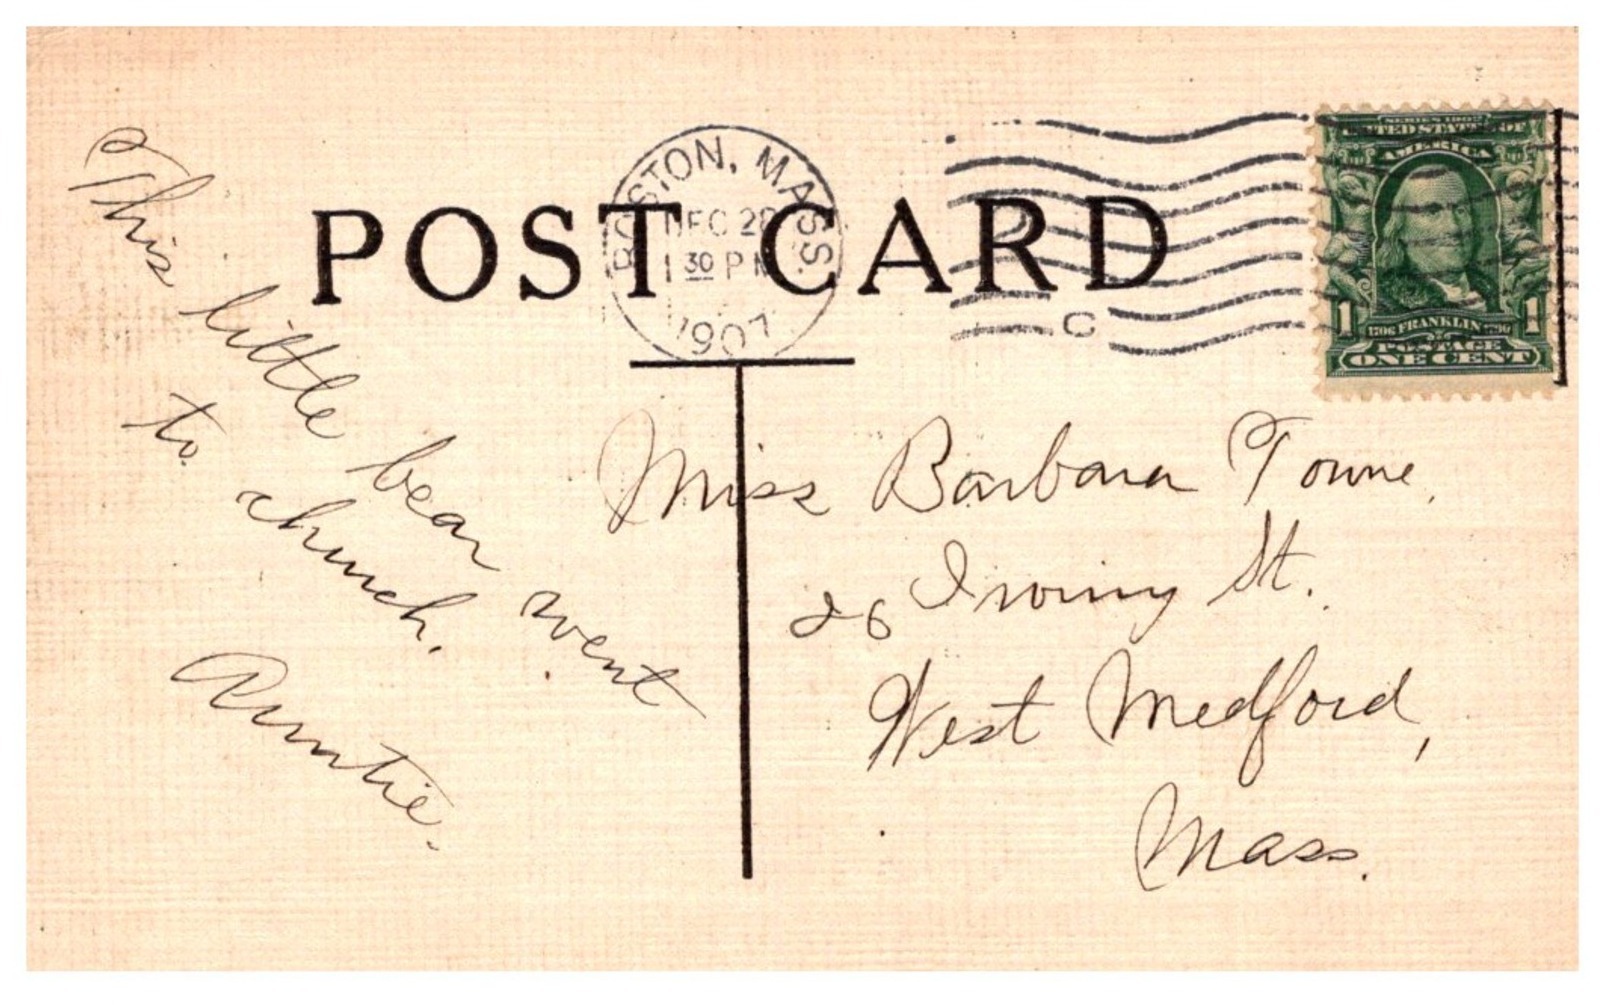 POST CARD
BOSTON, MASS.
DEC 28
30 PM
1907
C
SERIES 1902
UNITED STATES OF
AMERICA
1 1
1706 FRANKLIN 1790
POSTAGE
ONE CENT
This little bear went
to church.
Auntie.
Miss Barbara Towne,
26 Irving St.
West Medford,
Mass.